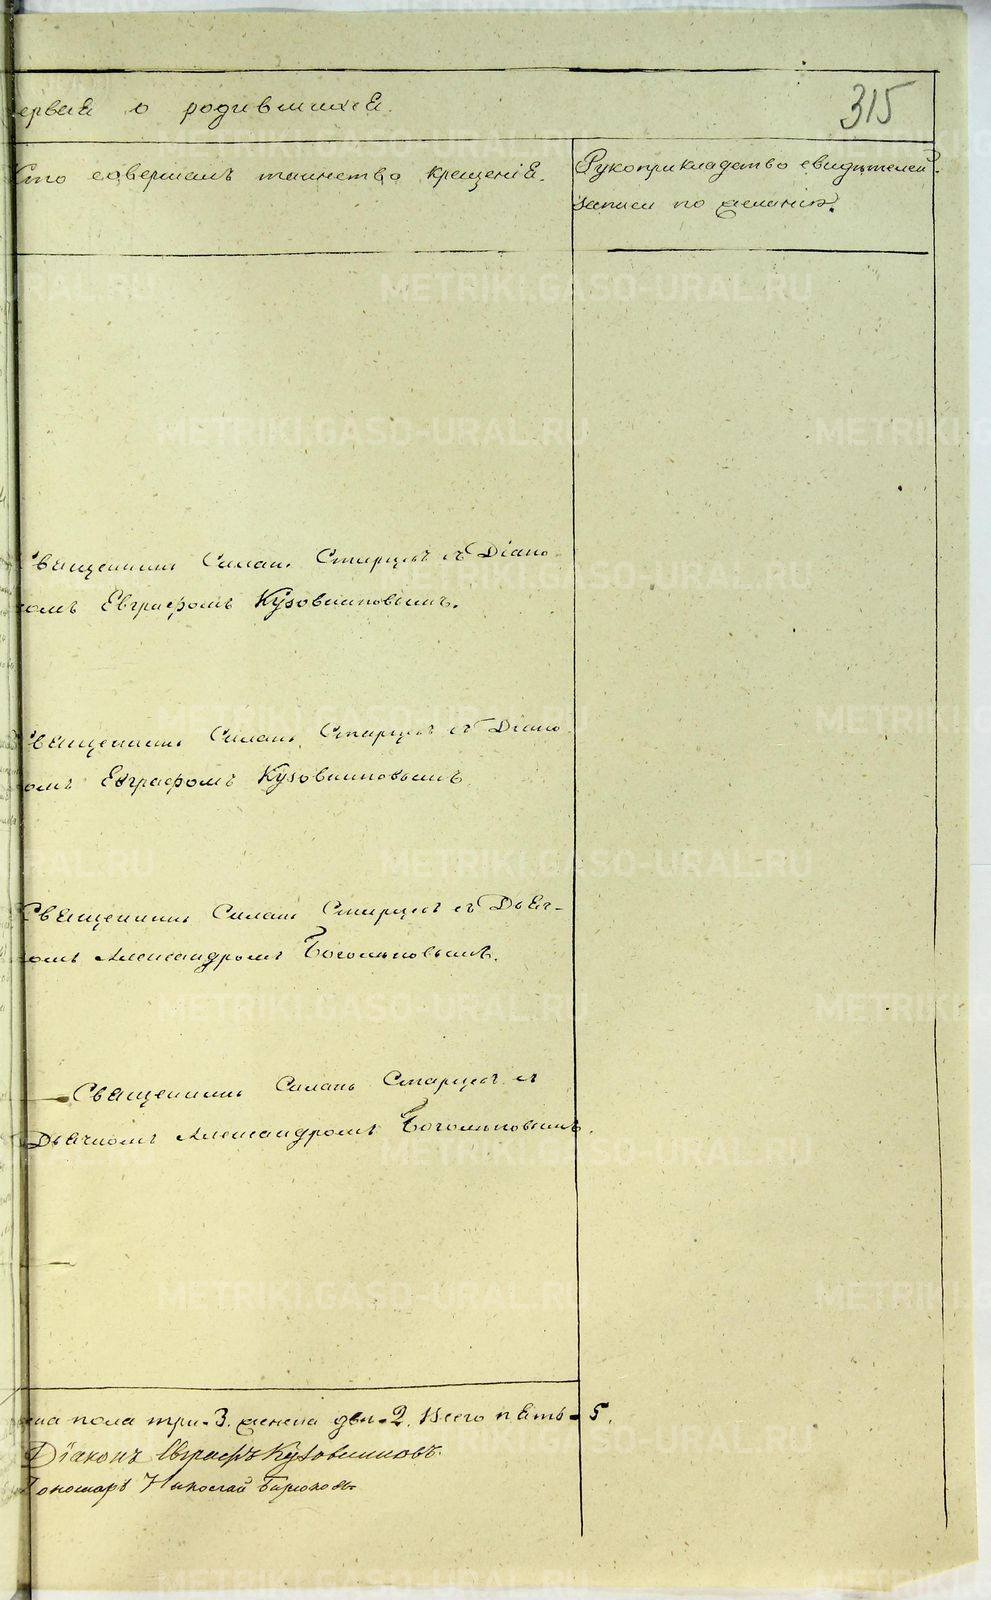 ервая о родившихся.
315
Кто совершалъ таинство крещенія.
Рукоприкладство свидѣтелей
записи по желанію.
Священникъ Симеонъ Старцевъ съ Діако-
номъ Евграфомъ Кузовниковымъ.
Священникъ Симеонъ Старцевъ съ Діако-
номъ Евграфомъ Кузовниковымъ
Священникъ Старцевъ съ Дьяч-
комъ Александромъ Боголѣповымъ.
Священникъ Старцевъ съ
Дьячкомъ Александромъ Боголѣповымъ.
пола три-3. женска двѣ-2. Всего пять-5.
Діаконъ Евграфъ Кузовниковъ.
Пономарь Николай Бирюковъ
METRIKI.GASO-URAL.RU